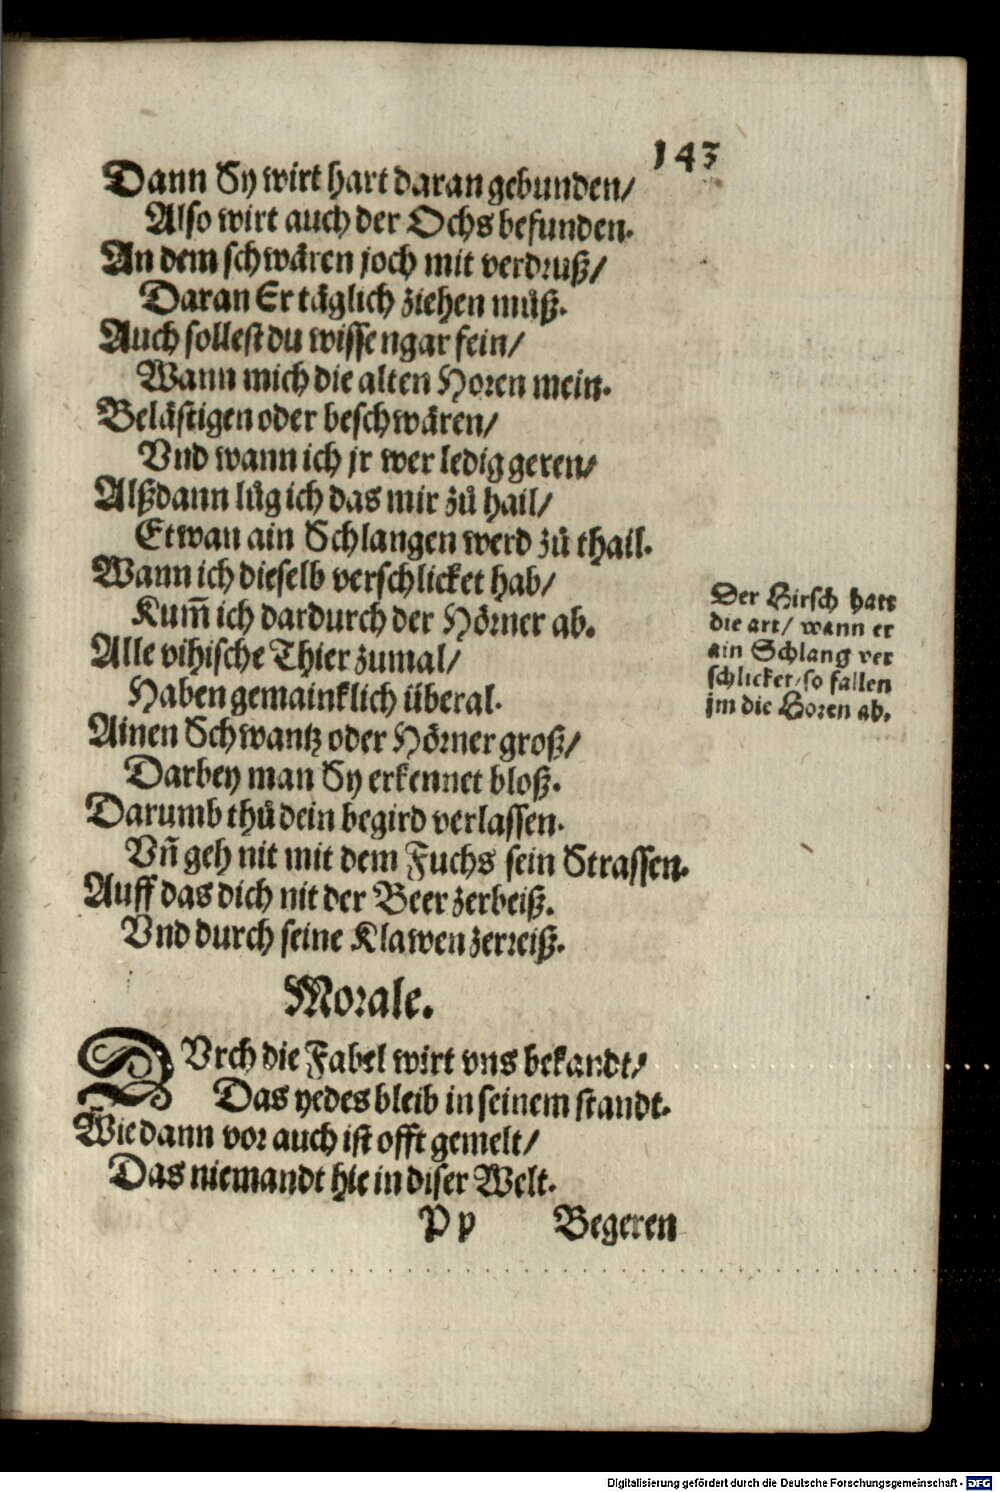 143
Dann Sy wirt hart daran gebunden/
Also wirt auch der Ochs befunden.
An dem schwären joch mit verdruß/
Daran Er täglich ziehen müß.
Auch sollest du wissen gar fein/
Wann mich die alten Horen mein.
Belästigen oder beschwären/
Vnd wann ich jr wer ledig geren/
Alßdann lůg ich das mir zů hail/
Etwan ain Schlangen werd zů thail.
Wann ich dieselb verschlicket hab/
Kum̃ ich dardurch der Hörner ab.
Alle vihische Thier zumal/
Haben gemainklich überal.
Ainen Schwantz oder Hörner groß/
Darbey man Sy erkennet bloß.
Darumb thů dein begird verlassen.
Vñ geh nit mit dem Fuchs sein Strassen.
Auff das dich nit der Beer zerbeiß.
Vnd durch seine Klawen zerreiß.
Der Hirsch hatt
die art/ wann er
ain Schlang ver
schlicket/ so fallen
jm die Horen ab.
Morale.
DVrch die Fabel wirt vns bekandt/
Das yedes bleib in seinem standt.
Wie dann vor auch ist offt gemelt/
Das niemandt hie in diser Welt.
Pp Begeren
Digitalisierung gefördert durch die Deutsche Forschungsgemeinschaft - DFG